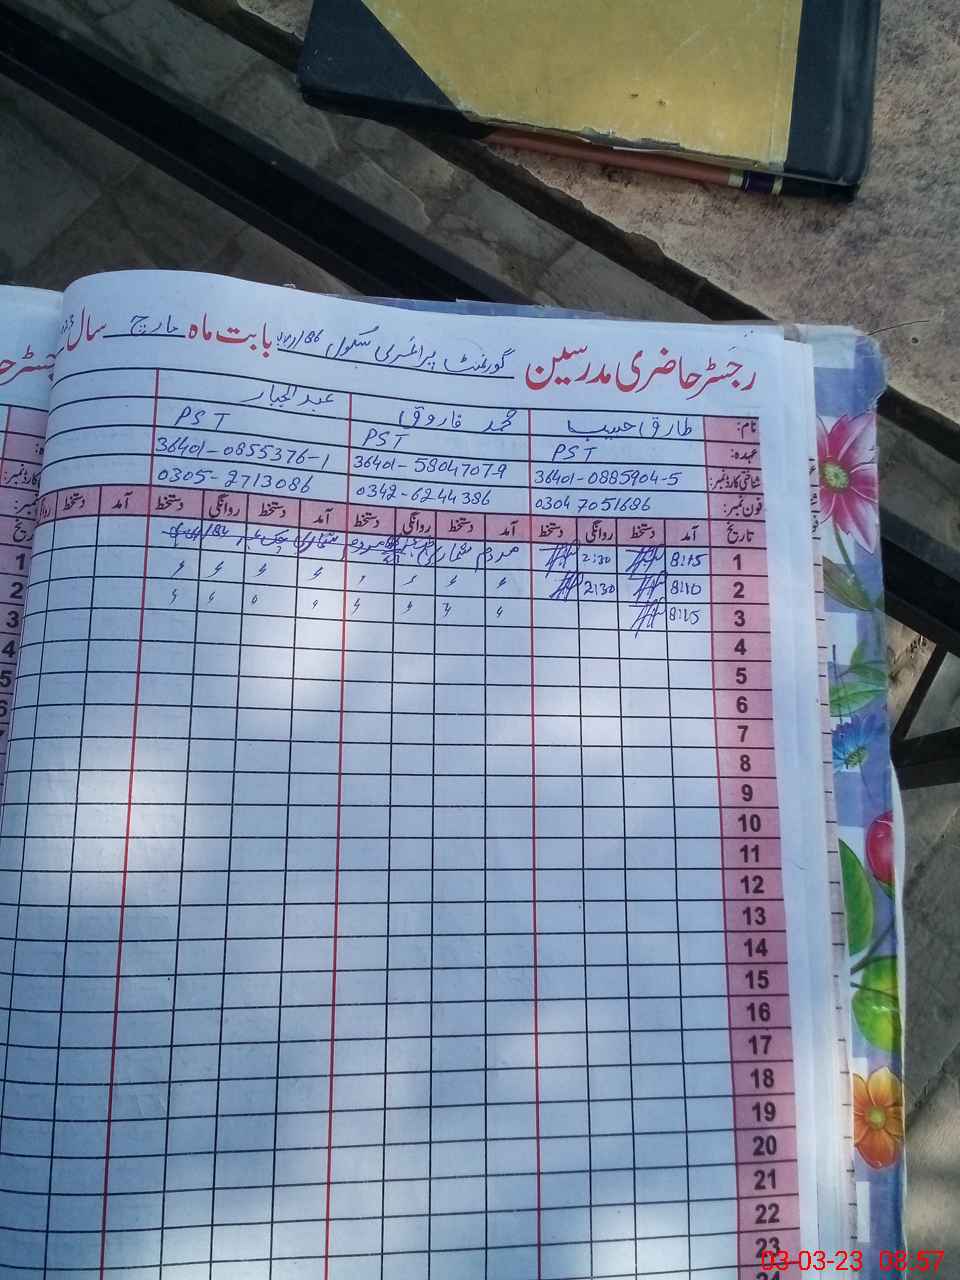 رجسٹر حاضری مدرسین گورنمنٹ پرائمری سکول 86/ بابت ماہ مارچ سال
نام: طارق حبیب محمد فاروق عبدالجبار
عہدہ: PST PST PST
شناختی کارڈ نمبر: 36401-0885904-5 36401-5804707-9 36401-0855376-1
فون نمبر: 03047051686 0342-6244386 0305-2713086
تاریخ آمد دستخط روانگی دستخط آمد دستخط روانگی دستخط آمد دستخط روانگی دستخط آمد دستخط
1 8:15 2:30 مردم شماری
2 8:10 2:30
3 8:15
4
5
6
7
8
9
10
11
12
13
14
15
16
17
18
19
20
21
22
23
24
03-03-23 08:57